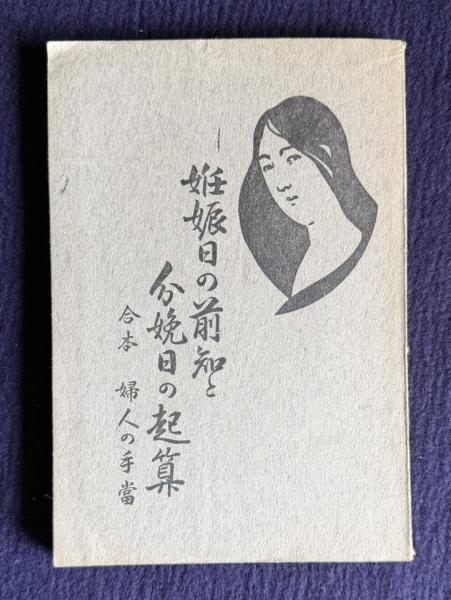 妊娠日の前知と
分娩日の起算
合本 婦人の手當